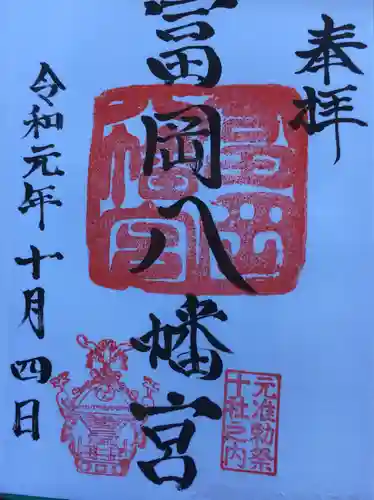 奉拝
富岡八幡宮
令和元年十月四日
元准勅祭
十社之内